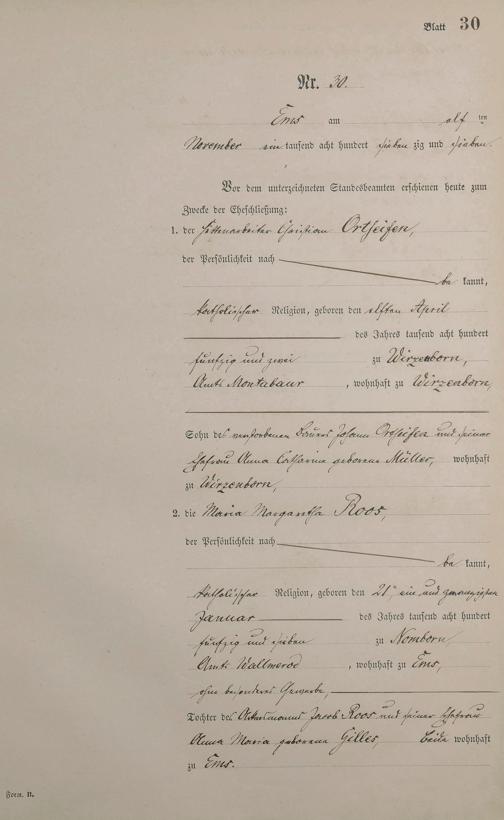 Blatt 30
Nr. 30.
Ems am elf ten
November ein tausend acht hundert sieben zig und sieben.
Vor dem unterzeichneten Standesbeamten erschienen heute zum
Zwecke der Eheschließung:
1. der Hüttenarbeiter Christian Ortseifen,
der Persönlichkeit nach
be kannt,
katholischer Religion, geboren den elften April
des Jahres tausend acht hundert
fünfzig und zwei zu Wirzenborn,
Amts Montabaur, wohnhaft zu Wirzenborn,
Sohn des verstorbenen Bauers Johann Ortseifen und seiner
Ehefrau Anna Catharina geborene Müller, wohnhaft
zu Wirzenborn,
2. die Maria Margaretha Roos,
der Persönlichkeit nach
be kannt,
katholischer Religion, geboren den 21ten ein und zwanzigsten
Januar des Jahres tausend acht hundert
fünfzig und sieben zu Nomborn,
Amts Wallmerod, wohnhaft zu Ems,
ohne besonderes Gewerbe,
Tochter des Ackersmanns Jacob Roos und seiner Ehefrau
Anna Maria geborene Gilles, beide wohnhaft
zu Ems.
Form. B.